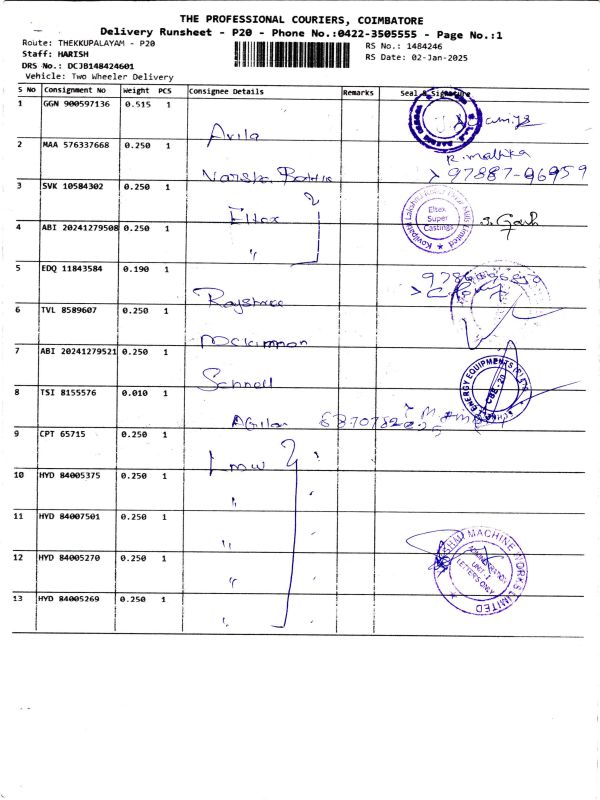 THE PROFESSIONAL COURIERS, COIMBATORE
Delivery Runsheet - P20 - Phone No.:0422-3505555 - Page No.:1
Route: THEKKUPALAYAM - P20
RS No.: 1484246
Staff: HARISH
RS Date: 02-Jan-2025
DRS No.: DCJB148424601
Vehicle: Two Wheeler Delivery
S No Consignment No Weight PCS Consignee Details Remarks Seal & Signature
1 GGN 900597136 0.515 1
Avila
2 MAA 576337668 0.250 1
R. Mallika
97887-96959
3 SVK 10584302 0.250 1
Eltex
Eltex Super Castings
4 ABI 20241279508 0.250 1
"
5 EDQ 11843584 0.190 1
Rajshree
6 TVL 8589607 0.250 1
Mckinnon
7 ABI 20241279521 0.250 1
Schnell
ENERGY EQUIPMENTS (P) LTD
CBE-20
8 TSI 8155576 0.010 1
Agilan
9 CPT 65715 0.250 1
Lmw
10 HYD 84005375 0.250 1
"
11 HYD 84007501 0.250 1
"
12 HYD 84005270 0.250 1
"
MACHINE WORKS LIMITED
ADMINISTRATION
UNIT-I
LETTERS ONLY
13 HYD 84005269 0.250 1
"